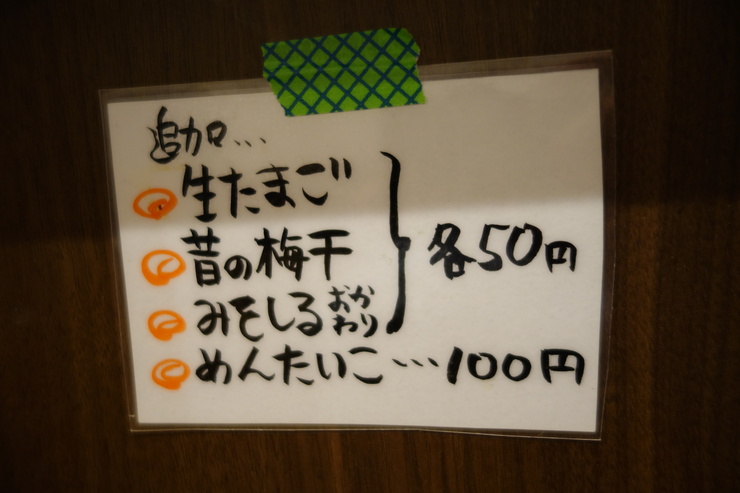 追加…
生たまご
昔の梅干
みそしるおかわり
各50円
めんたいこ…100円